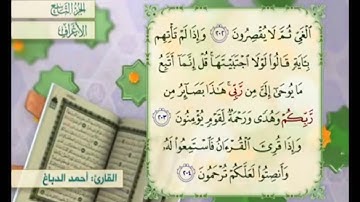 الجزء التاسع
الأعراف
ٱلْغَىِّ ثُمَّ لَا يُقْصِرُونَ ٢٠٢ وَإِذَا لَمْ تَأْتِهِم
بِـَٔايَةٍ قَالُوا۟ لَوْلَا ٱجْتَبَيْتَهَا قُلْ إِنَّمَآ أَتَّبِعُ
مَا يُوحَىٰٓ إِلَىَّ مِن رَّبِّى هَـٰذَا بَصَآئِرُ مِن
رَّبِّكُمْ وَهُدًى وَرَحْمَةٌ لِّقَوْمٍ يُؤْمِنُونَ ٢٠٣
وَإِذَا قُرِئَ ٱلْقُرْءَانُ فَٱسْتَمِعُوا۟ لَهُۥ
وَأَنصِتُوا۟ لَعَلَّكُمْ تُرْحَمُونَ ٢٠٤
القارئ: أحمد الدباغ